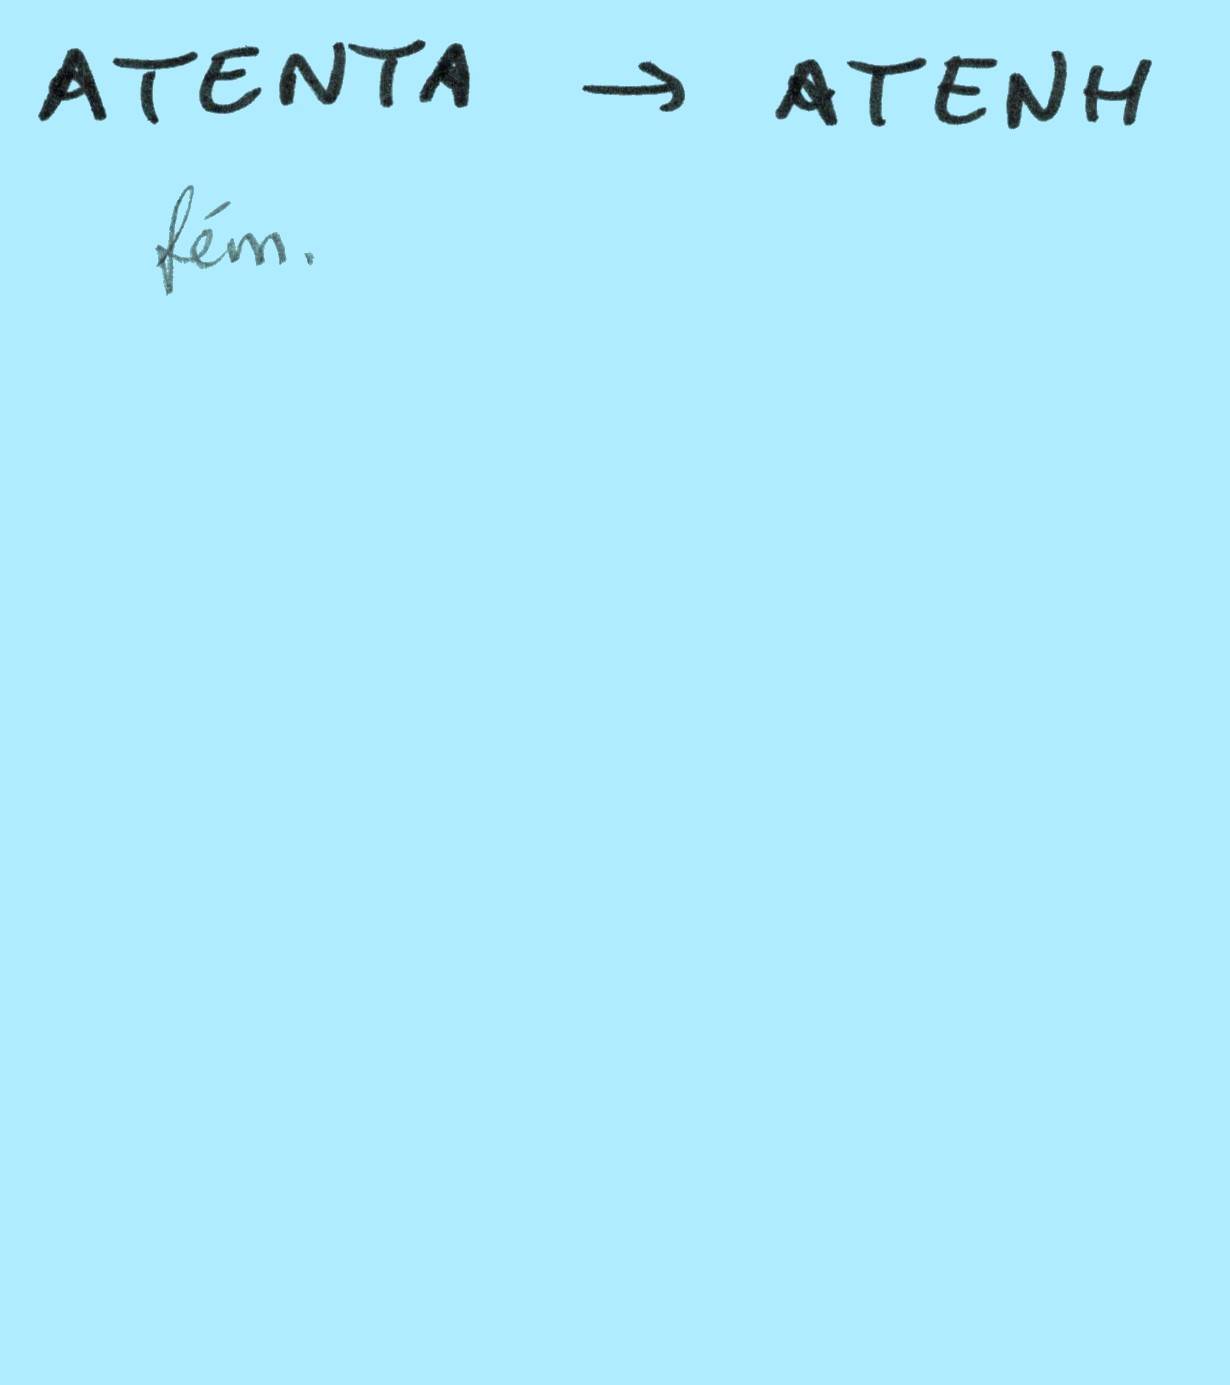 ATENTA → ATENH
fém.